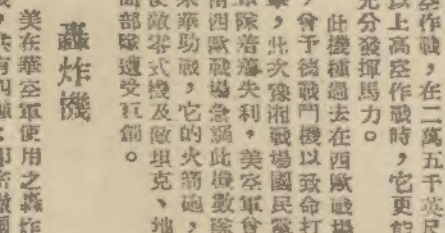 空作戰，在二萬五千英尺
以上高空作戰時，它更能
充分發揮馬力。
此機種過去在西歐戰場
，曾予德戰鬥機以致命打
擊，此次豫湘戰場國民黨
軍隊着着失利，美空軍曾
由西歐戰場急調此機數隊
來華助戰，它的火箭砲，
使敵零式機及敵坦克、地
面部隊遭受巨創。
轟炸機
美在華空軍使用之轟炸
，共有四種：即密徹爾